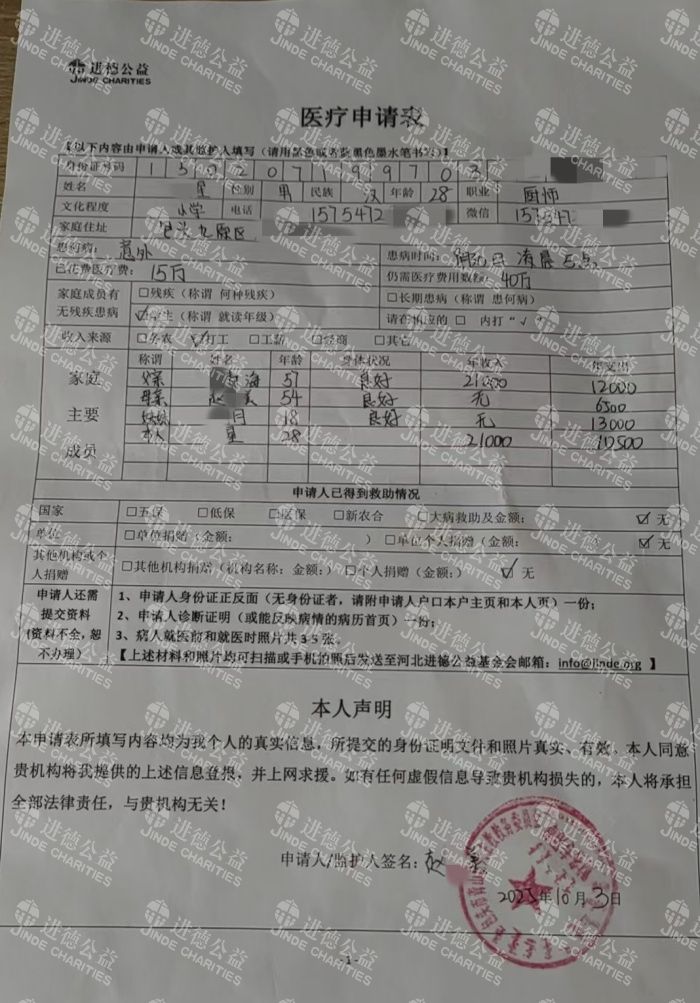 进德公益
JINDE CHARITIES
医疗申请表
【以下内容由申请人或其监护人填写（请用黑色或者蓝黑色墨水笔书写）】
身份证号码 1 5 0 2 0 7 1 9 9 7 0 3
姓名 星 性别 男 民族 汉 年龄 28 职业 厨师
文化程度 小学 电话 1575472 微信 157547
家庭住址 包头九原区
患何病: 意外 患病时间: 凌晨五点
已花费医疗费: 15万 仍需医疗费用数额: 40万
家庭成员有无残疾患病 □残疾（称谓 何种残疾） □长期患病（称谓 患何病）
☑学生（称谓 就读年级） 请在相应的 □ 内打“√”
收入来源 □务农 ☑打工 □工薪 □经商 □其它
家庭主要成员 称谓 姓名 年龄 身体状况 年收入 年支出
父亲 海 57 良好 21000 12000
母亲 赵 美 54 良好 无 6500
月 18 良好 无 13000
本人 星 28 21000 10500
申请人已得到救助情况
国家 □五保 □低保 □医保 □新农合 □大病救助及金额: ☑ 无
单位 □单位捐赠（金额: ） □单位个人捐赠（金额: ） ☑ 无
其他机构或个人捐赠 □其他机构捐赠（机构名称: 金额:） □个人捐赠（金额:） ☑ 无
申请人还需提交资料（资料不全，恕不办理）
1、申请人身份证正反面（无身份证者，请附申请人户口本户主页和本人页）一份；
2、申请人诊断证明（或能反映病情的病历首页）一份；
3、病人就医前和就医时照片共 3-5 张。
【上述材料和照片均可扫描或手机拍照后发送至河北进德公益基金会邮箱：info@jinde.org 】
本人声明
本申请表所填写内容均为我个人的真实信息，所提交的身份证明文件和照片真实、有效。本人同意
贵机构将我提供的上述信息登报，并上网求援。如有任何虚假信息导致贵机构损失的，本人将承担
全部法律责任，与贵机构无关！
申请人/监护人签名: 赵 美
2025年10月3日
- 1 -